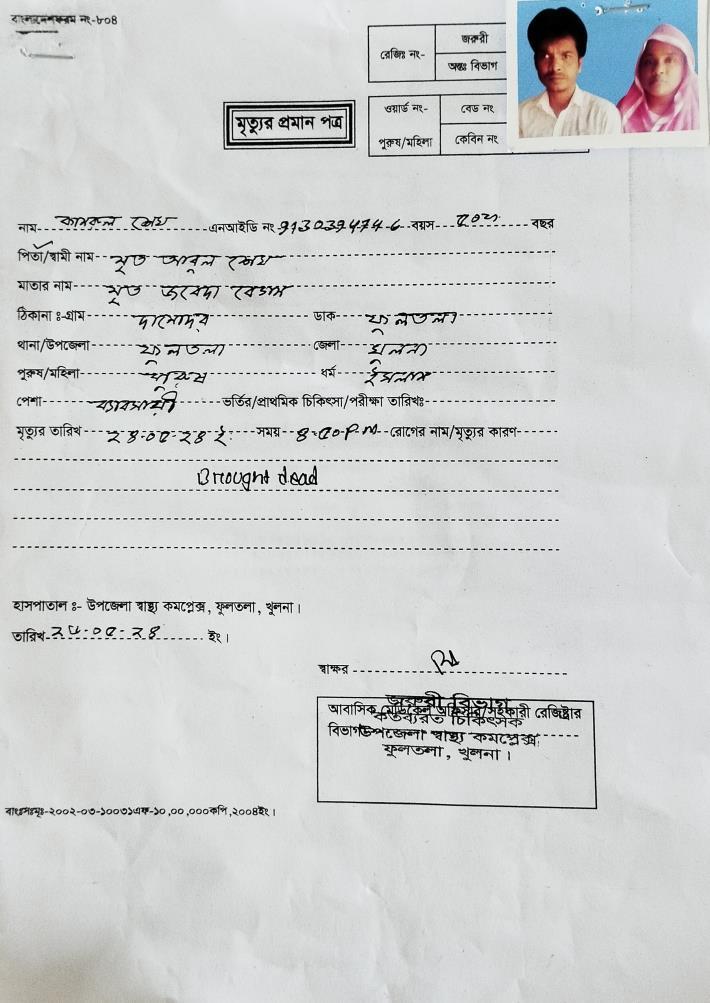 বাংলাদেশ ফরম নং-৮০৪
রেজিঃ নং-
জরুরী
অন্তঃ বিভাগ
মৃত্যুর প্রমান পত্র
ওয়ার্ড নং-
বেড নং
পুরুষ/মহিলা
কেবিন নং
নাম শেখ এনআইডি নং বয়স বছর
পিতা/স্বামী নাম মৃত আবুল শেখ
মাতার নাম মৃত জবেদা বেগম
ঠিকানা ঃ-গ্রাম দামোদর ডাক ফুলতলা
থানা/উপজেলা ফুলতলা জেলা খুলনা
পুরুষ/মহিলা পুরুষ ধর্ম ইসলাম
পেশা ব্যাবসায়ী ভর্তির/প্রাথমিক চিকিৎসা/পরীক্ষা তারিখঃ
মৃত্যুর তারিখ ২৪-০৫-২৪ ই: সময় ৪:৫০ P.M রোগের নাম/মৃত্যুর কারণ
Brought dead
হাসপাতাল ঃ- উপজেলা স্বাস্থ্য কমপ্লেক্স, ফুলতলা, খুলনা।
তারিখ ইং।
স্বাক্ষর
জরুরী বিভাগ
আবাসিক মেডিকেল অফিসার/সহকারী রেজিষ্ট্রার
কর্তব্যরত চিকিৎসক
বিভাগ
উপজেলা স্বাস্থ্য কমপ্লেক্স
ফুলতলা, খুলনা।
বাঃসঃমুঃ-২০০২-০৩-১০০৩১এফ-১০,০০,০০০কপি,২০০৪ইং।